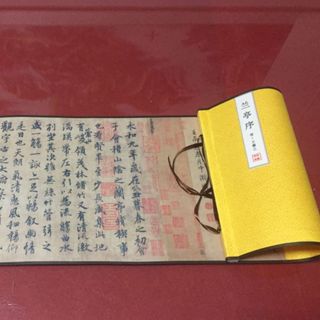 兰亭序
永和九年歲在癸丑暮春之初會
于會稽山陰之蘭亭脩稧事
也羣賢畢至少長咸集此地
有崇山峻領茂林脩竹又有清流激
湍暎帶左右引以為流觴曲水
列坐其次雖無絲竹管弦之
盛一觴一詠亦足以暢敘幽情
是日也天朗氣清惠風和暢仰
觀宇宙之大俯察